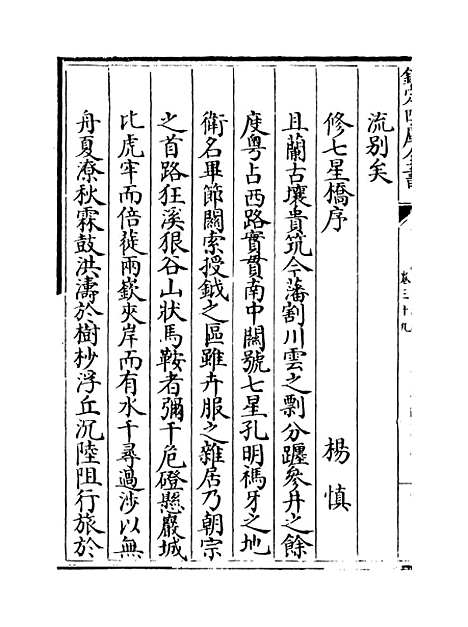 欽定四庫全書
卷三十九
流别矣
修七星橋序
楊慎
且蘭古壤貴筑今藩割川雲之剽分躔參井之餘
度粤占西路實貫南中闗號七星孔明禡牙之地
衛名畢節關索授鉞之區雖卉服之雜居乃朝宗
之首路狂溪狼谷山狀馬鞍者彌千危磴縣巖城
比虎牢而倍蓰兩嶔夾岸而有水千尋過涉以無
舟夏潦秋霖鼓洪濤於樹杪浮丘沉陸阻行旅於